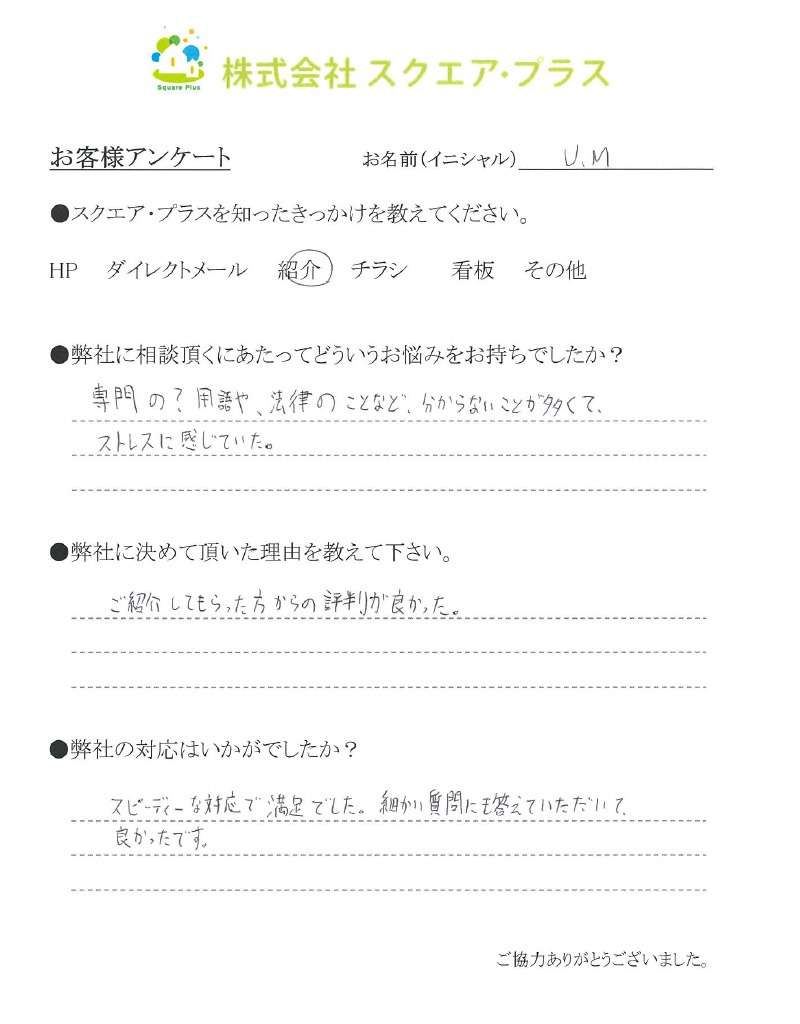 Square Plus
株式会社 スクエア・プラス
お客様アンケート お名前(イニシャル) U.M
●スクエア・プラスを知ったきっかけを教えてください。
HP ダイレクトメール 紹介 チラシ 看板 その他
●弊社に相談頂くにあたってどういうお悩みをお持ちでしたか?
専門の?用語や、法律のことなど、分からないことが多くて、
ストレスに感じていた。
●弊社に決めて頂いた理由を教えて下さい。
ご紹介してもらった方からの評判が良かった。
●弊社の対応はいかがでしたか?
スピーディーな対応で満足でした。細かい質問にも答えていただいて、
良かったです。
ご協力ありがとうございました。